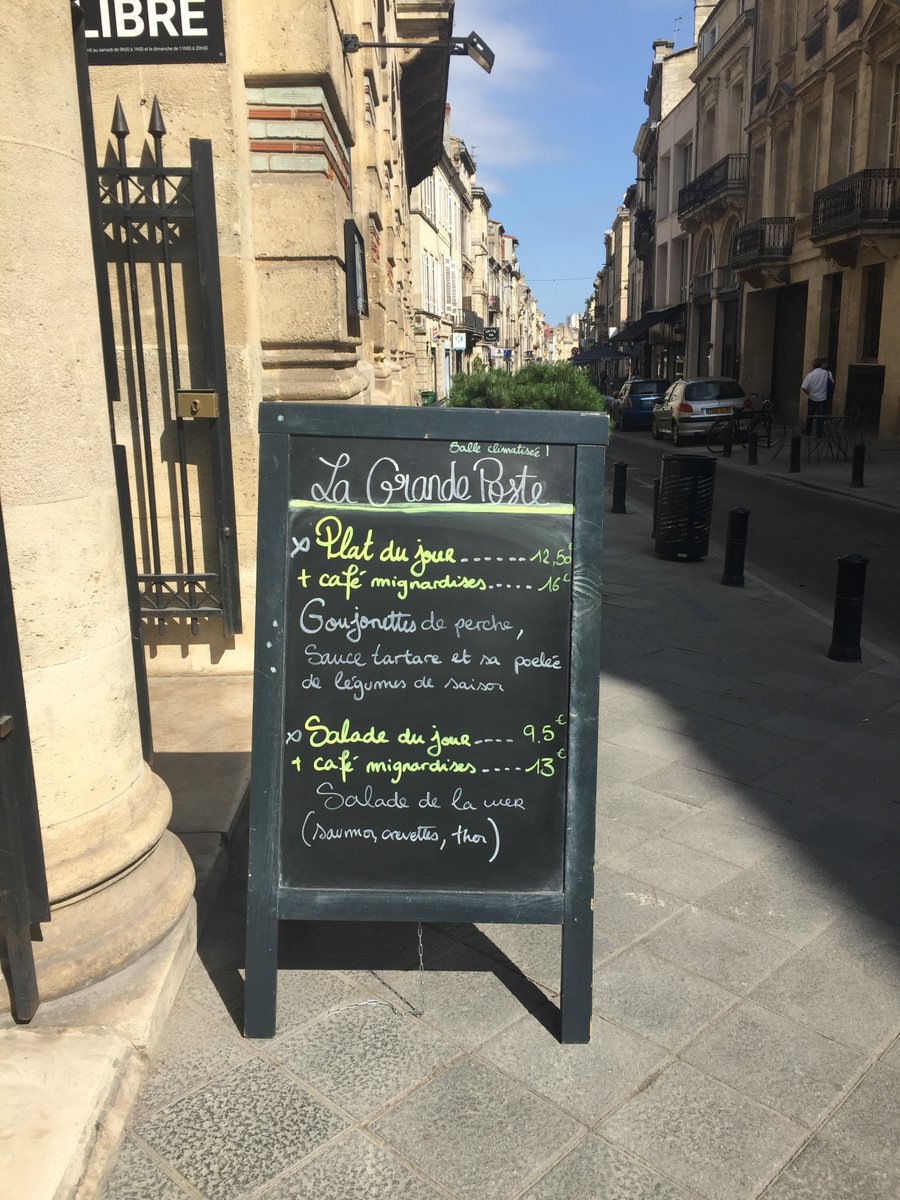 LIBRE
di au samedi de 9h00 à 1h00 et le dimanche de 11h00 à 20h00
Salle climatisée !
La Grande Poste
x Plat du jour ...... 12,50€
+ café mignardises..... 16€
Goujonettes de perche,
Sauce tartare et sa poelée
de légumes de saison
x Salade du jour.... 9.5€
+ café mignardises ....13€
Salade de la mer
(saumon, crevettes, thon)